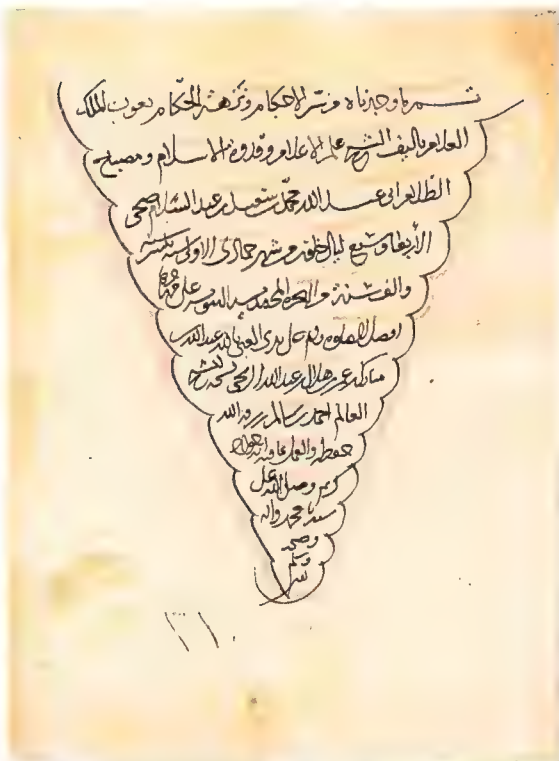 تم ما وجدناه من سر الاحكام ونزهة الحكام بعون الملك
العلام تاليف الشيخ علم الاعلام وقدوة الاسلام ومصباح
الظلام ابي عبد الله محمد بن سعيد بن عبد السلام ضحى
الأربعا وسبع ليال خلون من شهر جمادى الاولى سنة
والف سنة من الهجرة المحمدية النبوية على
افضل الصلوة وتم على يدي الغني بالله عبد الله
مبارك بن عمر بن هلال بن عبد الله نسخه للشيخ
العالم احمد بن سالم رزقه الله
حفظه والعمل بما فيه
كريم وصلى الله على
سيدنا محمد واله
وصحبه
وسلم